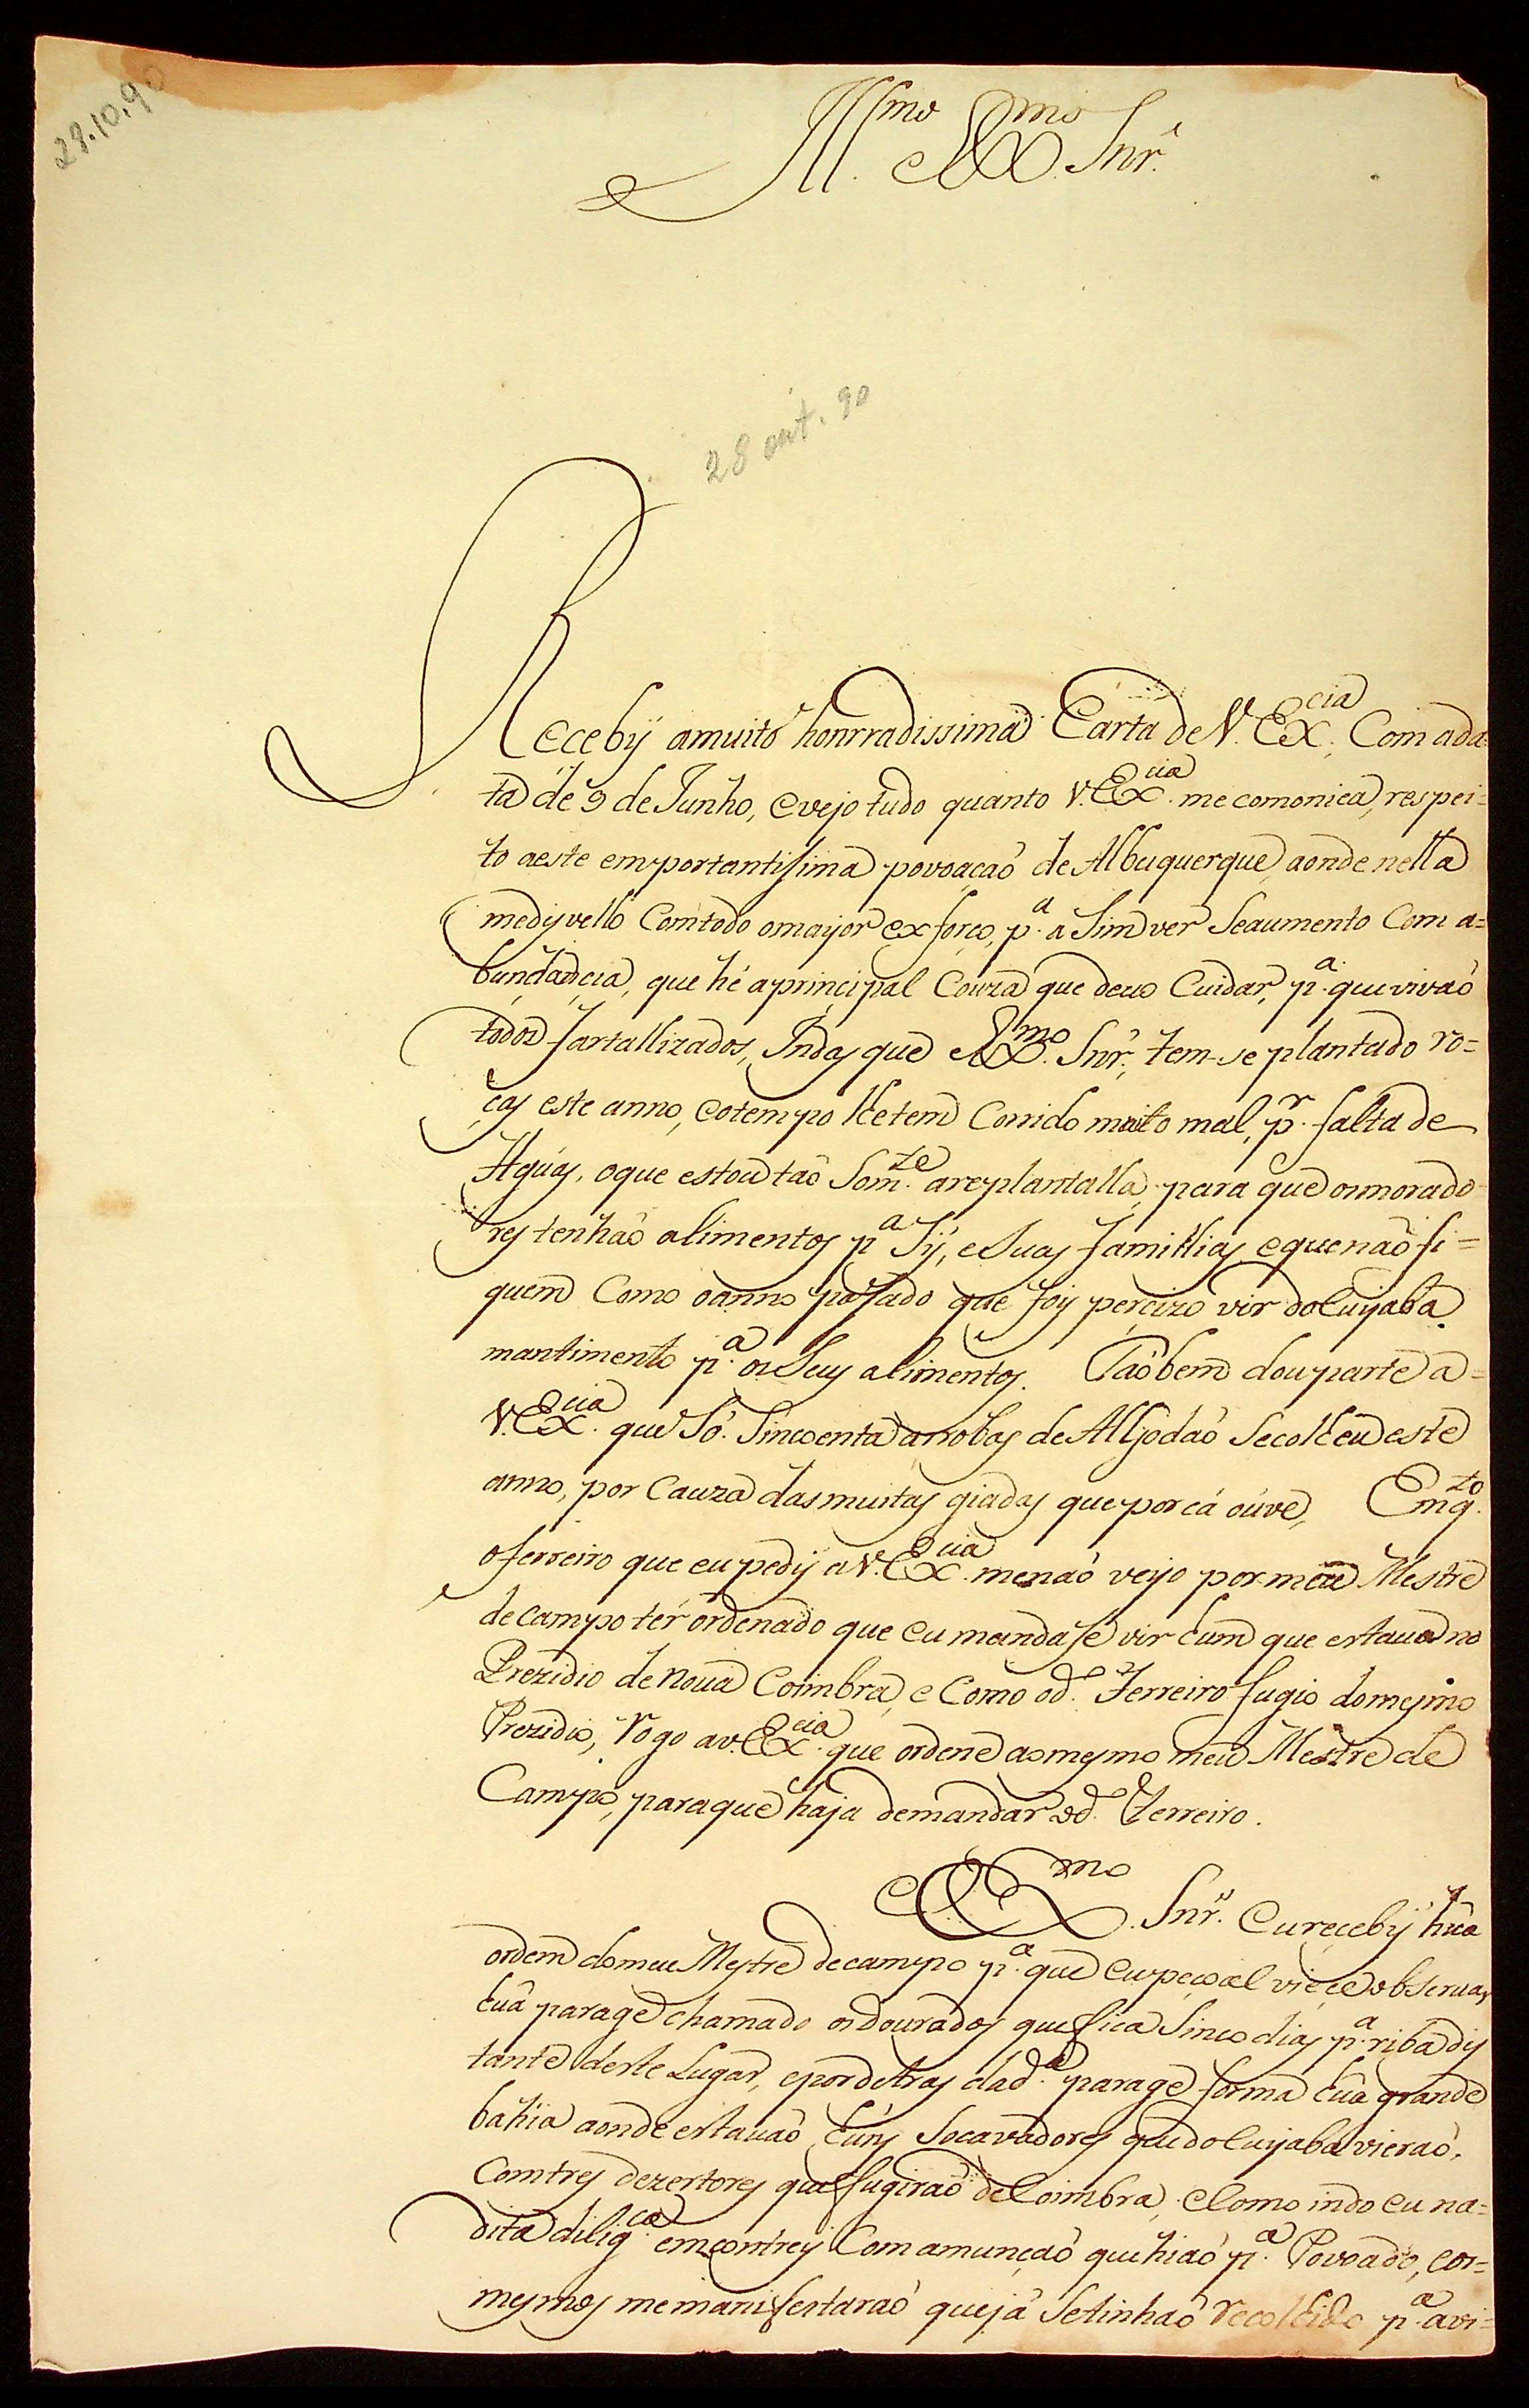 28.10.90
Ill.mo e Ex.mo Snr.
28 out. 90
Recebÿ amuito honrradissima Carta de V. Ex.cia Com ada-
ta de 9 de Junho, evejo tudo quanto V. Ex.cia me comonica, respei=
to aeste emportantissima povoação de Albuquerque, aonde nella
medisvello Comtodo omayor exforço, p.a asim ver Seaumento Com a=
bundancia, que hé aprincipal Couza que devo Cuidar, p.a que vivão
todos fartallizados, Indas que Ex.mo Snr., tem-se plantado ro=
ças este anno, eotempo lhe tem Corrido muito mal, p.r falta de
Agúas, oque estou tão Som.te areplantalla, para que osmorado-
res tenhão alimentos p.a Sÿ, e Suas familhias, equenão fi=
quem Como oanno passado que foy percizo vir doCuyaba
mantimento p.a os Seus alimentos. Tãobem douparte a=
V. Ex.cia que Só Sincoenta arrobas de Allgodão Secolheu este
anno, por Cauza dasmuitas giadas que por cá oúve, Emq.to
oferreiro que eu pedÿ a V. Ex.cia menão veyo por meu Mestre
decampo tér ordenado que eu mandase vir hum que estava no
Prezidio de Nova Coimbra, e Como od.o Ferreiro fugio domesmo
Prezidio, Rogo aV. Ex.cia que ordene aomesmo meu Mestre de
Campo, paraque haja demandar od.o Ferreiro.
Ex.mo Snr. Eu recebÿ hũa
ordem domeu Mestre decampo p.a que eu peçoal viece observar
hũa parage chamado osdourados que fica Sinco dias p.a riba dis
tante deste Lugar, epordetras dad.a parage forma hũa grande
bahia aonde estavão húns Socavadores que do Cuyaba vierão,
Comtres dezertores que fugirão de Coimbra, eComo indo eu na=
dita dilig.ca emcontrey Com amunção que hião p.a Povoado, eos=
mesmos memanifestarão quejá Setinhão recolhido p.a avi=